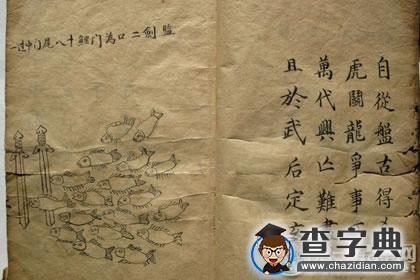 劍二口為门鲤十八尾门中
自從盤古得
虎鬪龍爭事
萬代興亡難
且於武后定
查字典
chazidian.com